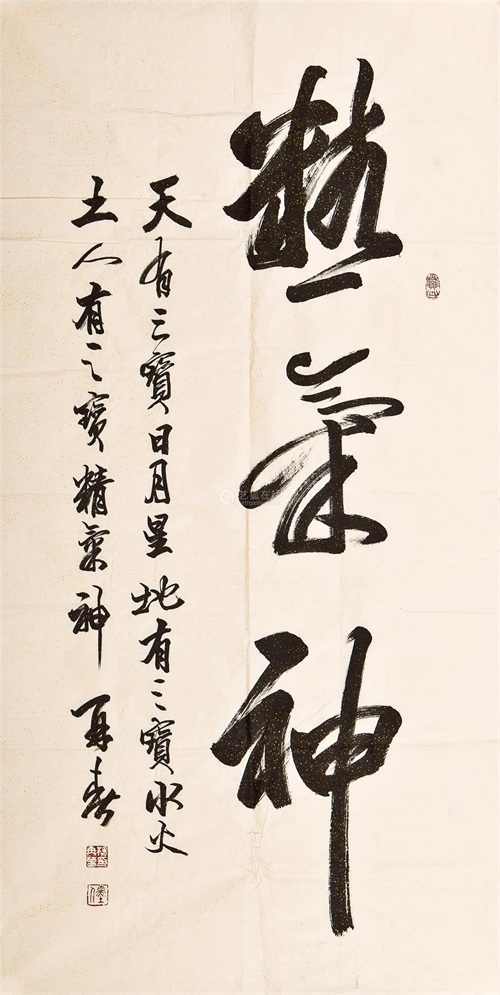 精氣神
天有三寶日月星地有三寶水火
土人有三寶精氣神
艺狐在线